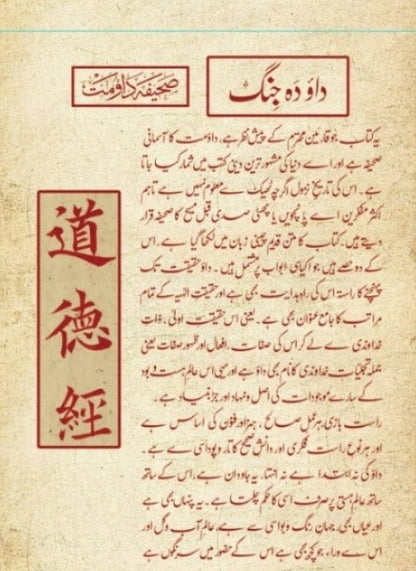 داؤ دَہ جِنگ
صحیفہ داؤمت
道
德
經
یہ کتاب جو قارئین محترم کے پیش نظر ہے، داؤمت کا آسمانی
صحیفہ ہے اور اسے دنیا کی مشہور ترین دینی کتب میں شمار کیا جاتا
ہے۔ اس کی تاریخ نزول اگرچہ ٹھیک سے معلوم نہیں ہے تاہم
اکثر مفکرین اسے پانچویں یا چھٹی صدی قبل مسیح کا صحیفہ قرار
دیتے ہیں۔ کتاب کا متن قدیم چینی زبان میں لکھا گیا ہے، اس
کے دو حصے ہیں جو اکیاسی ابواب پر مشتمل ہیں۔ داؤ حقیقت تک
پہنچنے کا راستہ اس کی راہ ہدایت بھی ہے اور حقیقتِ الٰہیہ کے تمام
مراتب کا جامع عنوان بھی ہے۔ یعنی اس حقیقت اولیٰ، ذاتِ
خداوندی سے لے کر اس کی صفات، افعال اور ظہور صفات یعنی
جملہ تجلیات خداوندی کا نام بھی داؤ ہے اور یہی اس عالم ہست و بود
کے سارے موجودات کی اصل و نہاد اور جڑ بنیاد ہے۔
راست بازی، ہر عمل صالح، ہنر اور فنون کی اساس ہے
اور ہر نوع راست فکری اور دانش صحیح کا تار و پود اسی سے ہے۔
داؤ کی نہ ابتدا ہے نہ انتہا، یہ جاودان ہے، اس کے ساتھ
ساتھ عالم ہستی پر صرف اسی کا حکم چلتا ہے۔ یہ پنہاں بھی ہے
اور عیاں بھی، جہان رنگ و بو اسی سے ہے، عالم آب و گل اور
اس سے وراء جو کچھ بھی ہے اس کے حضور میں سرنگوں ہے